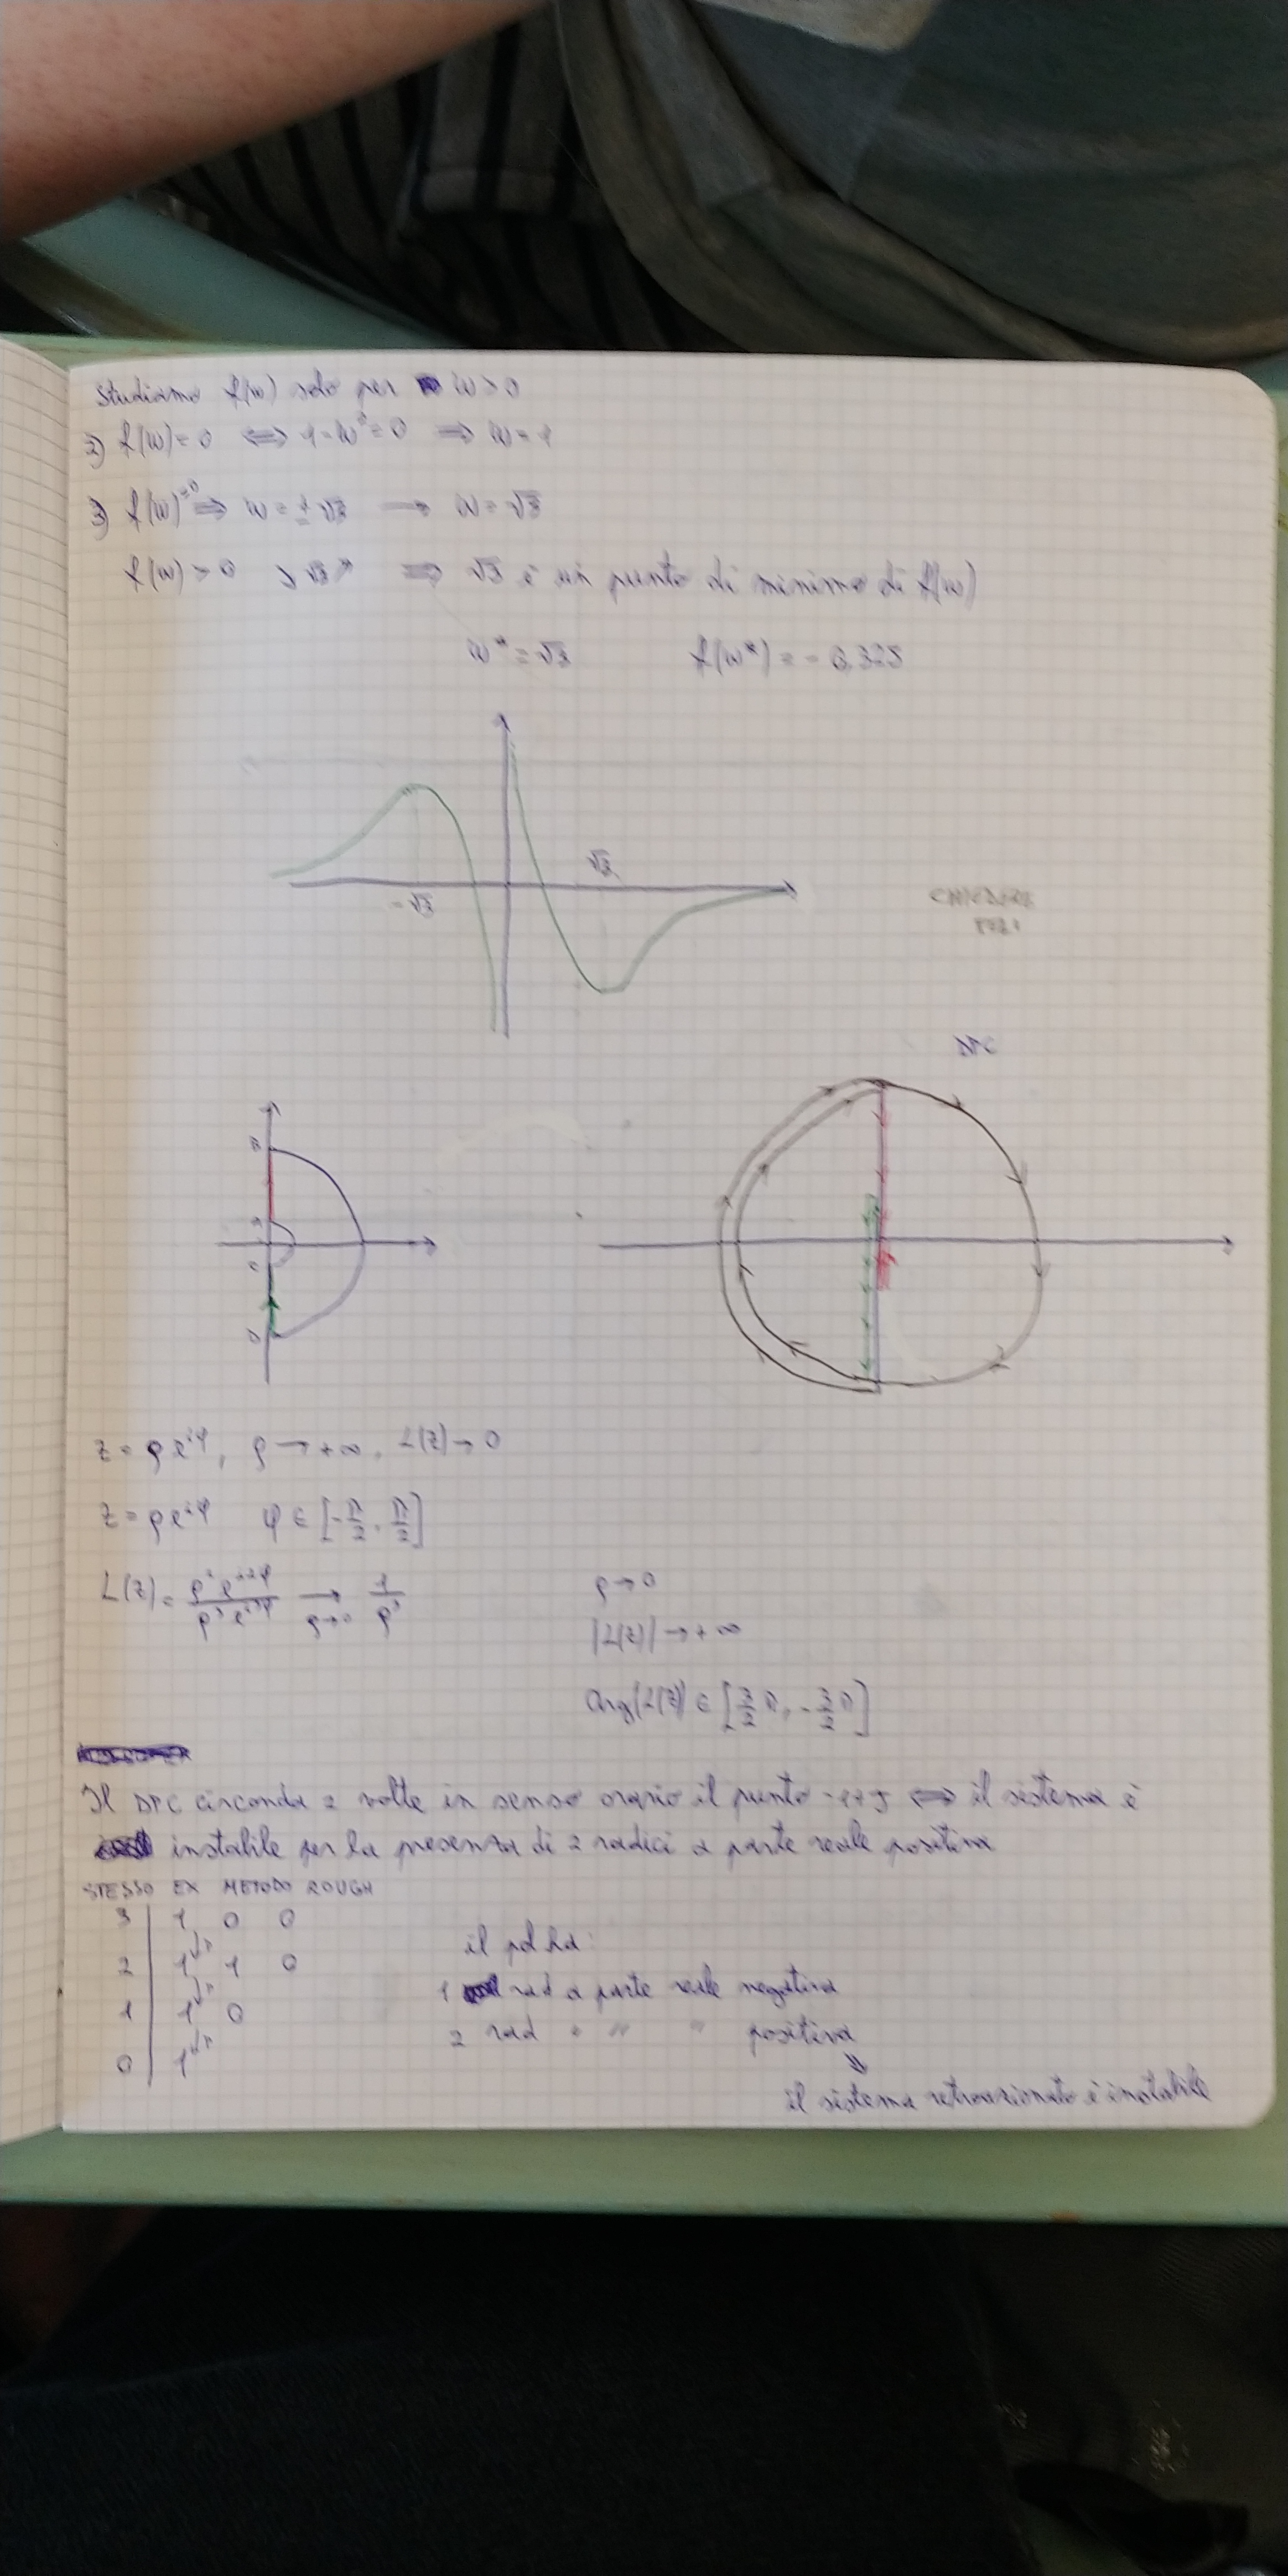 Studiamo f(w) solo per w > 0
2) f(w) = 0 ⟺ 1 - w² = 0 ⟹ w = 1
3) f(w) = 0 ⟹ w = ± √3 → w = √3
f(w) > 0 √3 ⟹ √3 è un punto di minimo di f(w)
w* = √3 f(w*) = - 0.325
√3
-√3
DPC
B
A
C
D
z = ρ e^{iφ}, ρ → +∞, L(z) → 0
z = ρ e^{iφ} φ ∈ [-π/2, π/2]
L(z) = → 1/ρ³
ρ → 0
ρ → 0
|L(z)| → +∞
Arg(L(z)) ∈ [3/2 π, -3/2 π]
Il DPC circonda 2 volte in senso orario il punto -1+j ⟺ il sistema è
instabile per la presenza di 2 radici a parte reale positiva
STESSO EX METODO ROUGH
3 | 1 0 0
2 | 1 1 0
1 | 1 0
0 | 1
il pol ha:
1 rad a parte reale negativa
2 rad " " " positiva
⇓
il sistema retroazionato è instabile